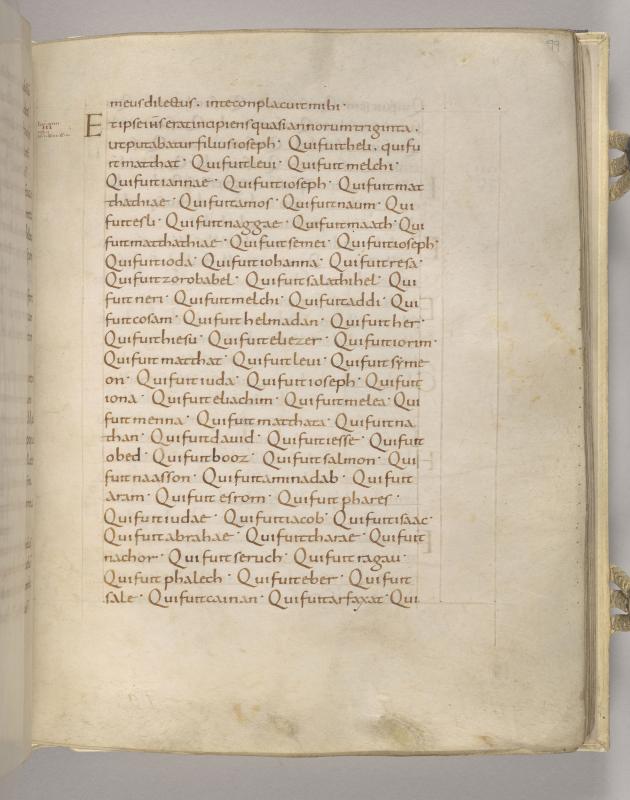 99
meus dilectus · in te conplacuit mihi ·
Et ipse ih̅s erat incipiens quasi annorum triginta ·
ut putabatur filius ioseph · Qui fuit heli · qui fu
it matthat · Qui fuit leui · Qui fuit melchi ·
Qui fuit iannae · Qui fuit ioseph · Qui fuit mat
thathiae · Qui fuit amos · Qui fuit naum · Qui
fuit esli · Qui fuit naggae · Qui fuit maath · Qui
fuit matthathiae · Qui fuit semei · Qui fuit ioseph ·
Qui fuit ioda · Qui fuit iohanna · Qui fuit resa ·
Qui fuit zorobabel · Qui fuit salathihel · Qui
fuit neri · Qui fuit melchi · Qui fuit addi · Qui
fuit cosam · Qui fuit helmadan · Qui fuit her ·
Qui fuit hiesu · Qui fuit eliezer · Qui fuit iorim ·
Qui fuit matthat · Qui fuit leui · Qui fuit syme
on · Qui fuit iuda · Qui fuit ioseph · Qui fuit
iona · Qui fuit eliachim · Qui fuit melea · Qui
fuit menna · Qui fuit matthata · Qui fuit na
than · Qui fuit dauid · Qui fuit iesse · Qui fuit
obed · Qui fuit booz · Qui fuit salmon · Qui
fuit naasson · Qui fuit aminadab · Qui fuit
aram · Qui fuit esrom · Qui fuit phares ·
Qui fuit iudae · Qui fuit iacob · Qui fuit isaac ·
Qui fuit abrahae · Qui fuit tharae · Qui fuit
nachor · Qui fuit seruch · Qui fuit ragau ·
Qui fuit phalech · Qui fuit eber · Qui fuit
sale · Qui fuit cainan · Qui fuit arfaxat · Qui